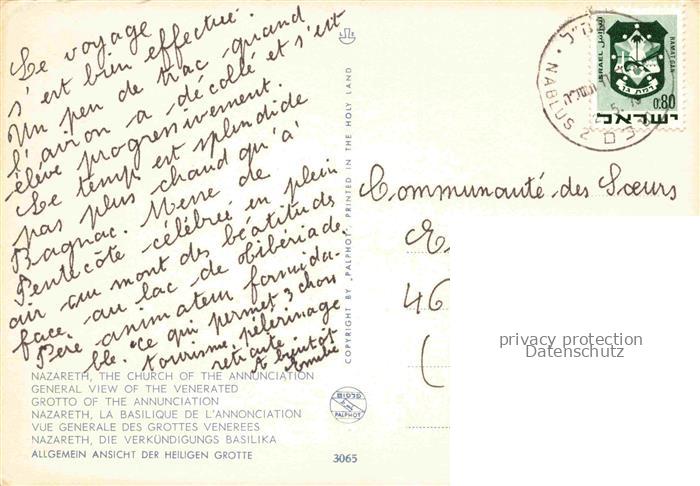 Le voyage
s'est bien effectué.
Un peu de trac quand
l'avion a décollé et s'est
élevé progressivement.
Le temps est splendide
pas plus chaud qu'à
Bagnac. Messe de
Pentecôte célébrée en plein
air au mont des béatitudes
face au lac de Tibériade.
Père animateur formida-
ble. Ce qui permet 3 choses
tourisme, pèlerinage
retraite
A bientôt
NAZARETH, THE CHURCH OF THE ANNUNCIATION
GENERAL VIEW OF THE VENERATED
GROTTO OF THE ANNUNCIATION
NAZARETH, LA BASILIQUE DE L'ANNONCIATION
VUE GENERALE DES GROTTES VENEREES
NAZARETH, DIE VERKÜNDIGUNGS BASILIKA
ALLGEMEIN ANSICHT DER HEILIGEN GROTTE
3065
פלפוט
PALPHOT
COPYRIGHT BY "PALPHOT", PRINTED IN THE HOLY LAND
NABLUS 2
ISRAEL
RAMAT GAN
רמת גן
0.80
ישראל
Communauté des Sœurs
46
privacy protection
Datenschutz